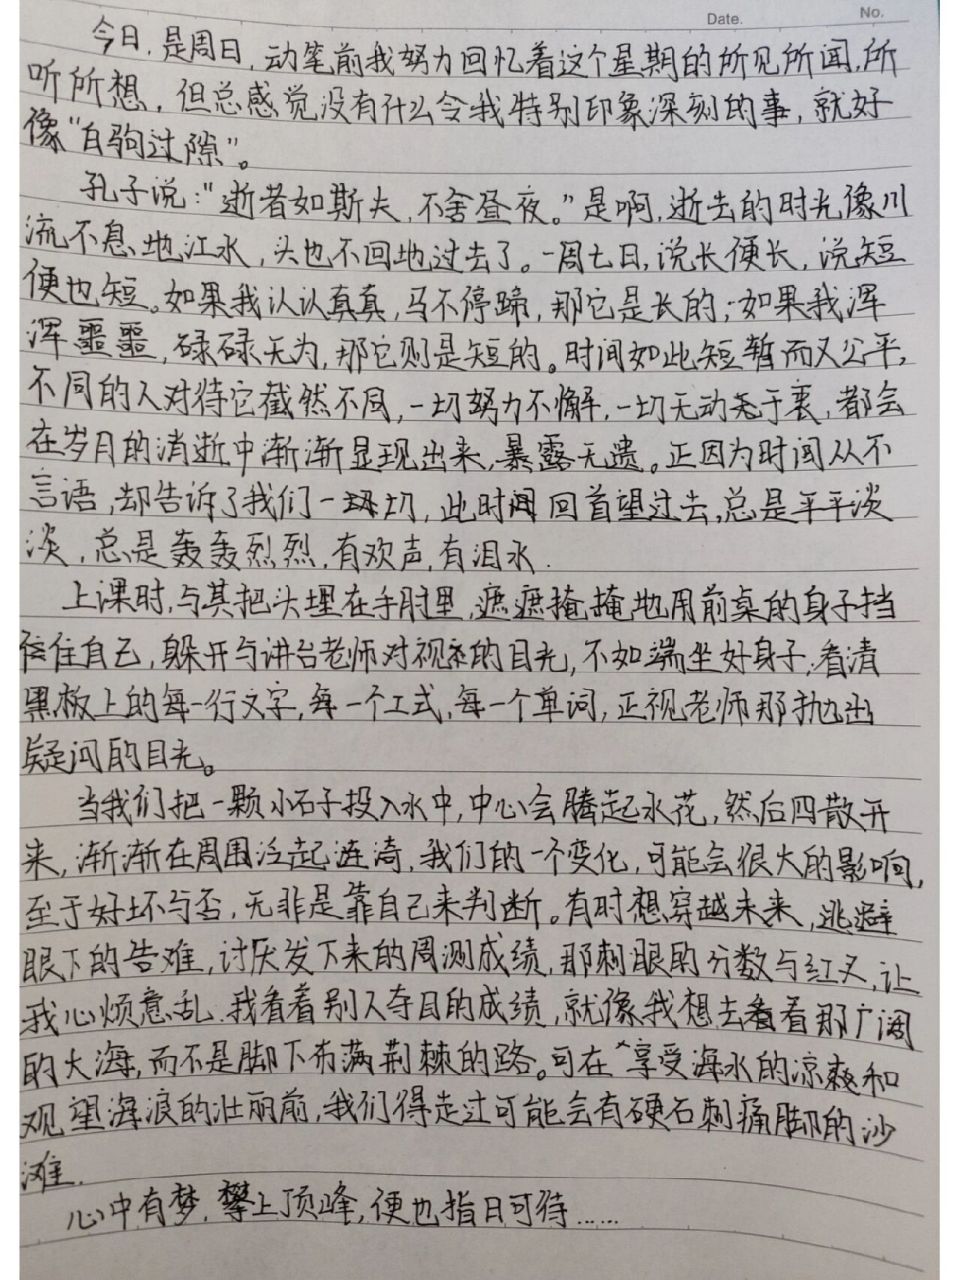 Date.
No.
今日,是周日,动笔前我努力回忆着这个星期的所见所闻,所
听所想,但总感觉没有什么令我特别印象深刻的事,就好
像“白驹过隙”。
孔子说:“逝者如斯夫,不舍昼夜。”是啊,逝去的时光像川
流不息地江水,头也不回地过去了。一周七日,说长便长,说短
便也短。如果我认认真真,马不停蹄,那它是长的;如果我浑
浑噩噩,碌碌无为,那它则是短的。时间如此短暂而又公平,
不同的人对待它截然不同,一切努力不懈,一切无动于衷,都会
在岁月的消逝中渐渐显现出来,暴露无遗。正因为时间从不
言语,却告诉了我们一切,此时回首望过去,总是平平淡
淡,总是轰轰烈烈,有欢声,有泪水.
上课时,与其把头埋在手肘里,遮遮掩掩地用前桌的身子挡
住自己,躲开与讲台老师对视的目光,不如端坐好身子,看清
黑板上的每一行文字,每一个工式,每一个单词,正视老师那抛出
疑问的目光。
当我们把一颗小石子投入水中,中心会腾起水花,然后四散开
来,渐渐在周围泛起涟漪,我们的一个变化,可能会很大的影响,
至于好坏与否,无非是靠自己来判断。有时想穿越未来,逃避
眼下的苦难,讨厌发下来的周测成绩,那刺眼的分数与红叉,让
我心烦意乱.我看着别人夺目的成绩,就像我想去看看那广阔
的大海,而不是脚下布满荆棘的路。可在享受海水的凉爽和
观望海浪的壮丽前,我们得走过可能会有硬石刺痛脚的沙
滩.
心中有梦,攀上顶峰,便也指日可待……